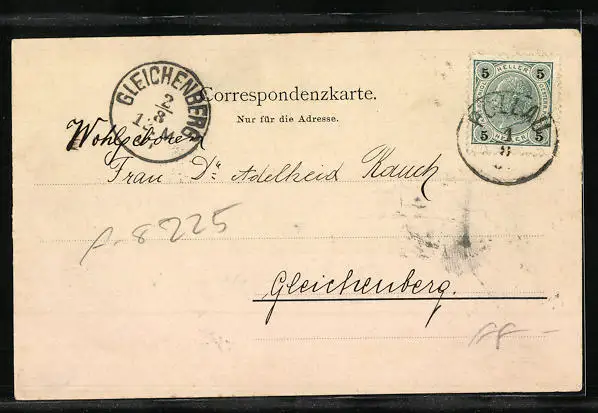 GLEICHENBERG
2
8
Correspondenzkarte.
Nur für die Adresse.
5 HELLER 5
5 HELLER 5
1
8
Wohlgeboren
Frau Dr. Adelheid Rauch
8225
Gleichenberg.